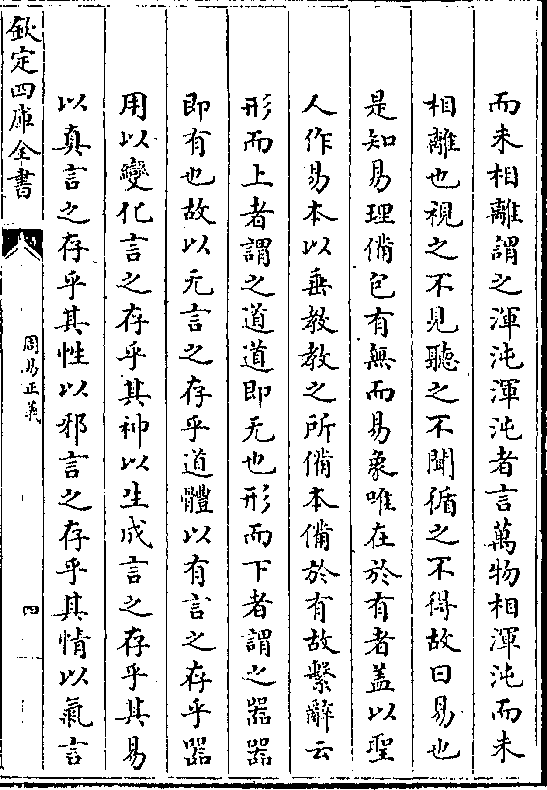 而未相離謂之渾沌渾沌者言萬物相渾沌而未
相離也視之不見聽之不聞循之不得故曰易也
是知易理備包有無而易象唯在於有者蓋以聖
人作易本以垂教教之所備本備於有故繫辭云
形而上者謂之道道即无也形而下者謂之器器
即有也故以无言之存乎道體以有言之存乎器
用以變化言之存乎其神以生成言之存乎其易
以真言之存乎其性以邪言之存乎其情以氣言
欽定四庫全書
周易正義
四